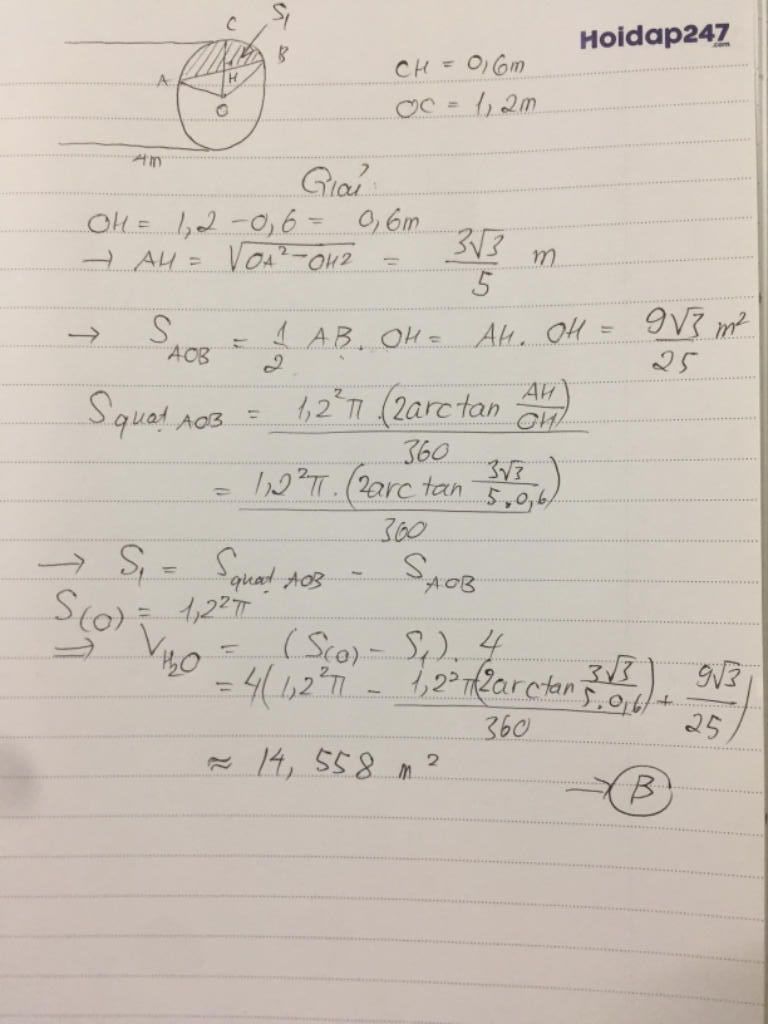 Hoidap247
.com
C S₁
B
A H
O
4m
CH = 0,6m
OC = 1,2m
Giải:
OH = 1,2 - 0,6 = 0,6m
→ AH = √(OA² - OH2) = 3√3/5 m
→ S_AOB = 1/2 AB. OH = AH. OH = 9√3/25 m²
S quạt AOB = 1,2²π.(2arctan AH/OH)/360
= 1,2²π.(2arctan 3√3/5.0,6)/360
→ S₁ = S quạt AOB - S_AOB
S(O) = 1,2²π
⇒ V_H₂O = (S(O) - S₁). 4
= 4(1,2²π - 1,2²π(2arctan 3√3/5.0,6)/360 + 9√3/25)
≈ 14, 558 m²
→ B